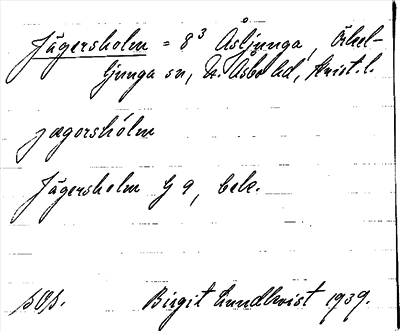 Jägersholm = 8³ Åsljunga, Örkel-
ljunga sn, N. Åsbo hd, Krist. l.
jægorshólm
Jägersholm G 9, bek.
sOs. Birgit Lundkvist 1939.